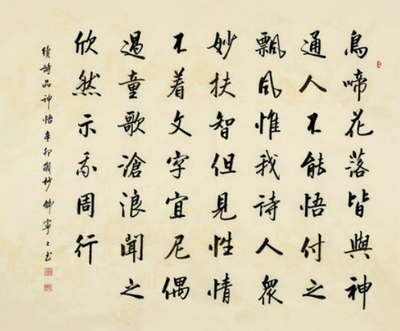 鳥啼花落皆與神
通人不能悟付之
飄風惟我詩人衆
妙扶智但見性情
不着文字宣尼偶
過童歌滄浪聞之
欣然示我周行
續詩品神悟辛卯歲杪